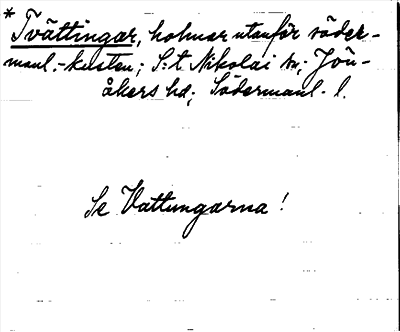 * Tvättingar, holmar utanför söder-
manl.-kusten; S:t Nikolai sn; Jön-
åkers hd; Södermanl. l.
Se Vattungarna!